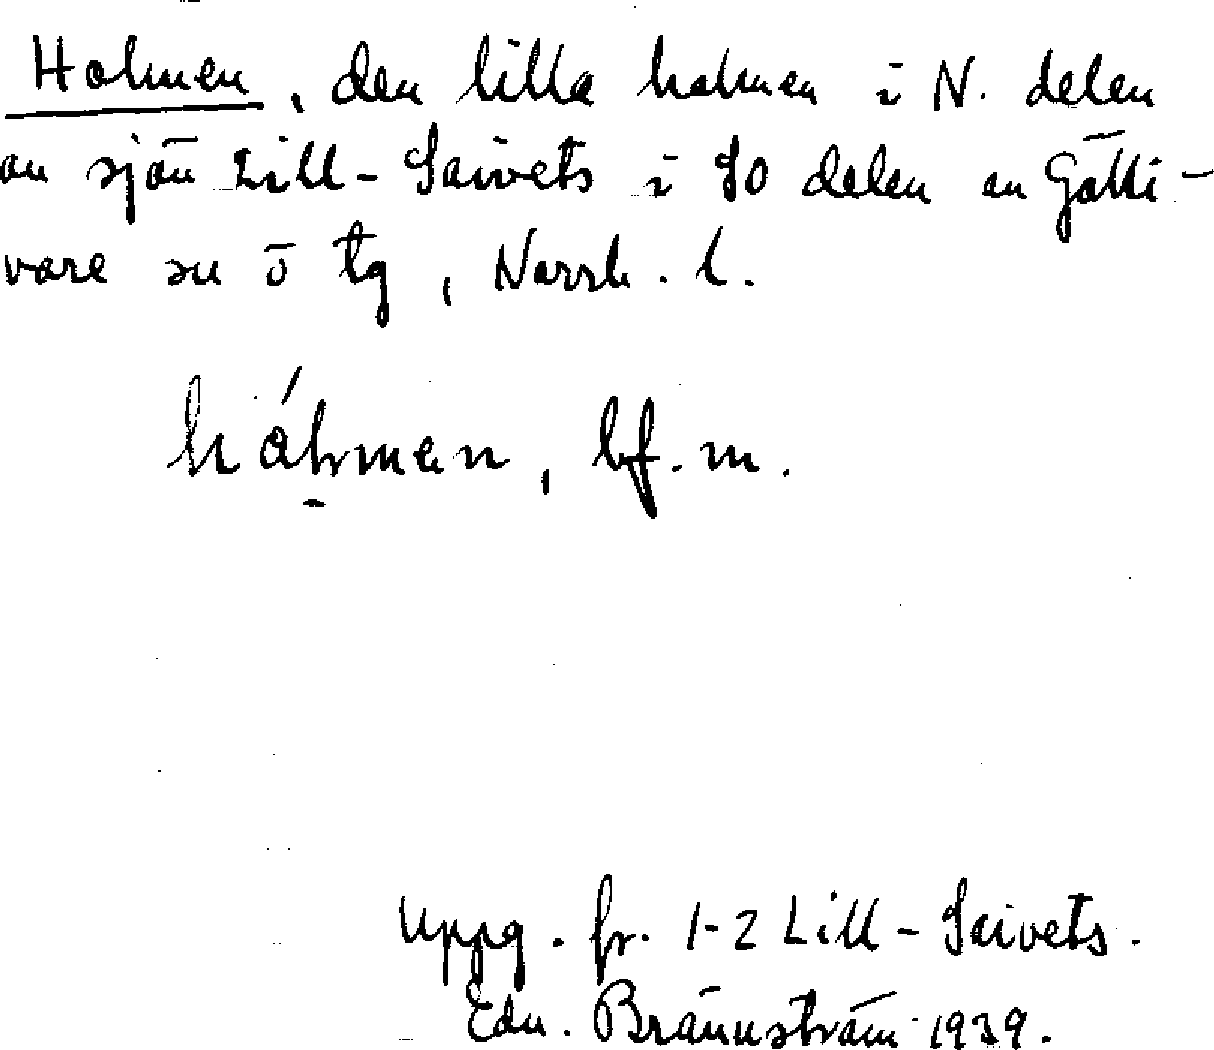 Holmen, den lilla holmen i N. delen
av sjön Lill-Saivets i SO delen av Gälli-
vare sn o tg, Norrb. l.
håɫmen, bf. m.
Uppg. fr. 1-2 Lill-Saivets.
Edv. Brännström 1939.